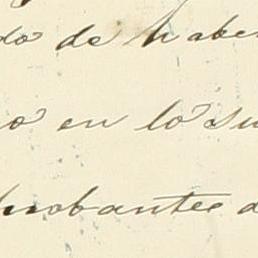 do de haber
o en lo su
probantes d